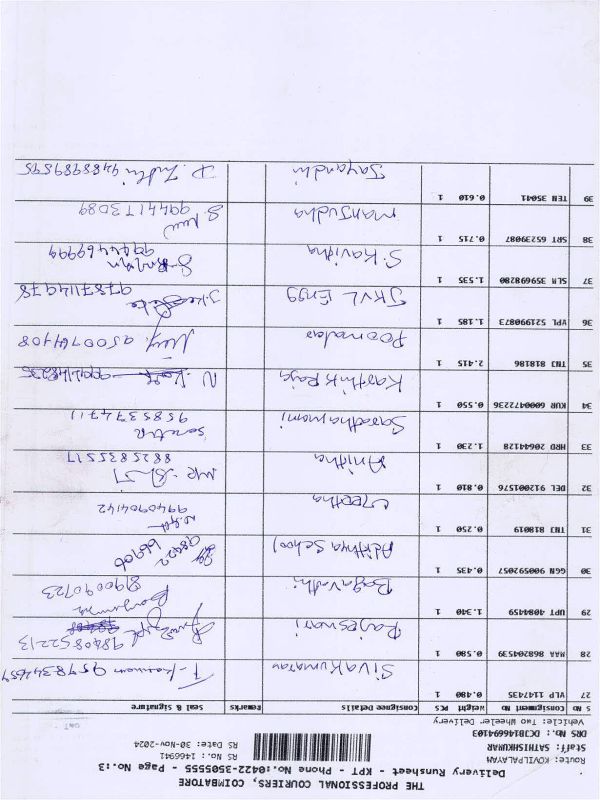 THE PROFESSIONAL COURIERS, COIMBATORE
Delivery Runsheet - KPT - Phone No.:0422-3505555 - Page No.:3
Route: KOVILPALAYAM
Staff: SATHISHKUMAR RS No.: 1466941
DRS No.: DCJB146694103 RS Date: 30-Nov-2024
Vehicle: Two Wheeler Delivery
S No Consignment No Weight PCS Consignee Details Remarks Seal & Signature
27 VLP 1147435 0.480 1 Sivakumaran 9578344657
28 MAA 868204539 0.580 1 Rajeswari 9840852213
29 UPT 4084459 1.340 1 Bagavathi 890090723
30 GGN 900592057 0.435 1 Adithya School 98422 66906
31 TNJ 818019 0.250 1 Geetha 9940904142
32 DEL 912001576 0.810 1 Anitha 8825835517
33 HRD 20644128 1.230 1 Saradhamani 9585374711
34 KUR 60004722236 0.550 1 Karthik Raja
35 TNJ 818186 2.415 1 9500764408
36 VPL 521990873 1.185 1 SKVL Engg 9787114978
37 SLM 359698280 1.535 1 S. Kavitha 9994469999
38 SRT 65239087 0.715 1 Manjudha 9944173089
39 TEN 35041 0.610 1 Jayandhi 9488989595